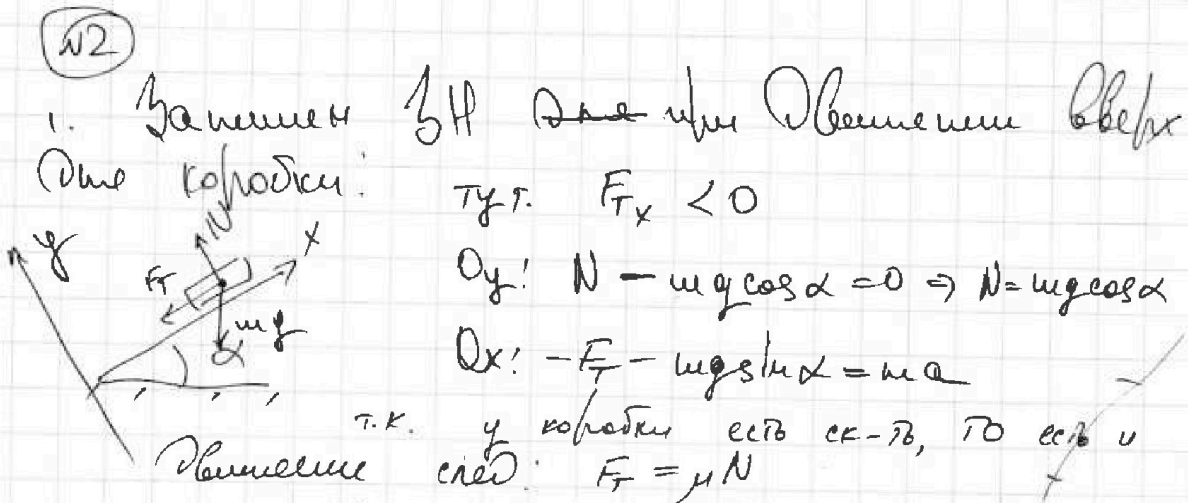 №2
1. Запишем ЗН при Движении вверх
Для коробки:
тут. F_Tx < 0
y N x
F_T
Oy: N − mg cos α = 0 ⇒ N = mg cos α
mg
α
Ox: −F_T − mg sin α = ma
т.к. у коробки есть ск-ть, то есть и
Движение след: F_T = μN